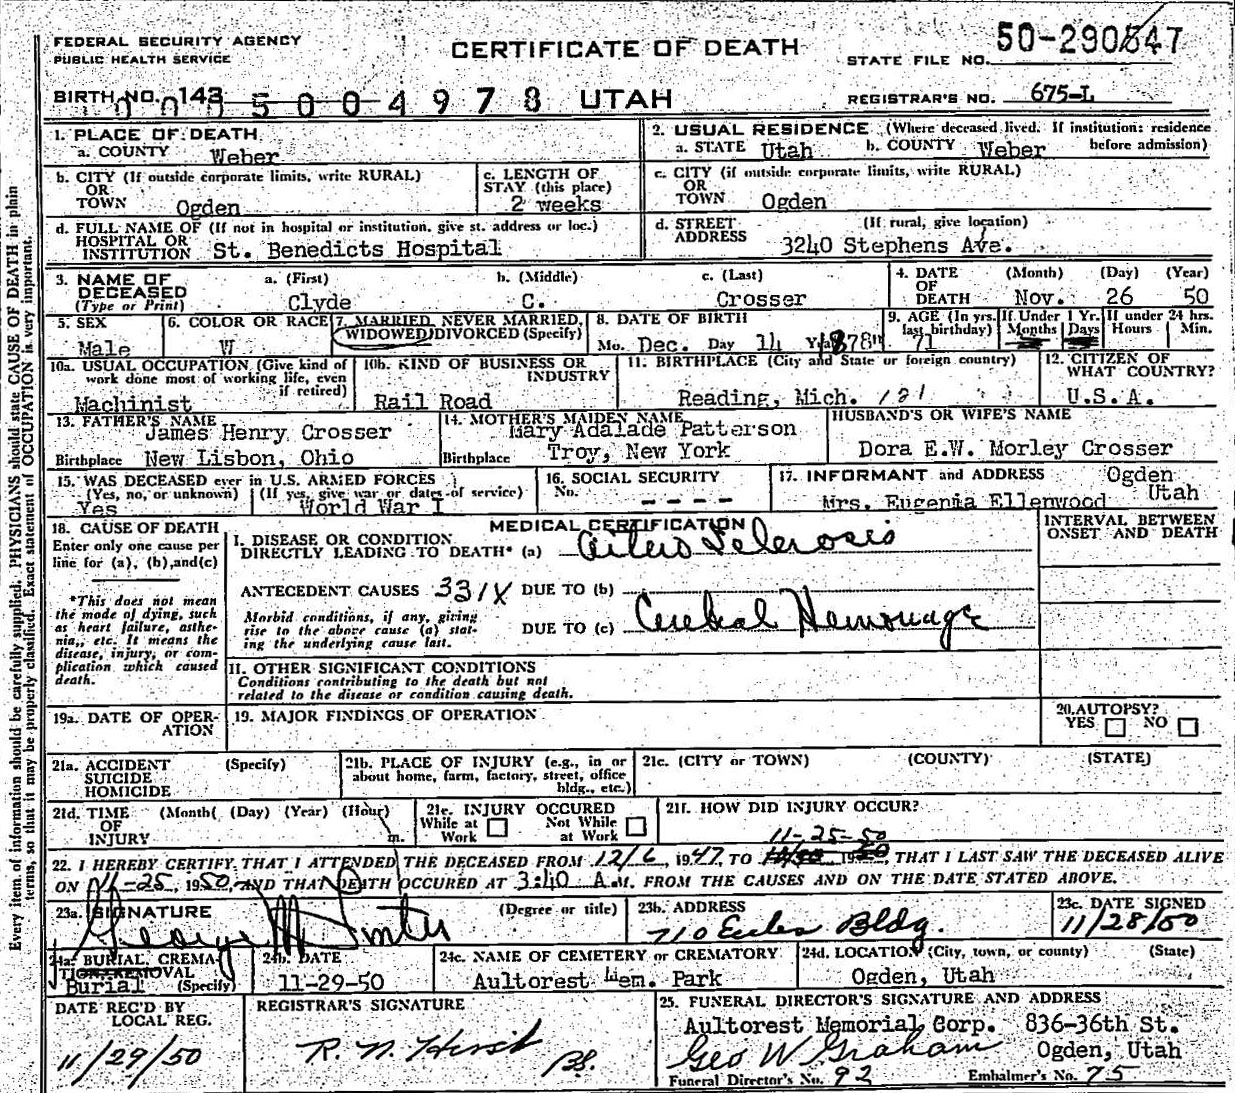 FEDERAL SECURITY AGENCY
PUBLIC HEALTH SERVICE
CERTIFICATE OF DEATH
STATE FILE NO. 50-290847
BIRTH NO. 143 5004978 UTAH
REGISTRAR'S NO. 675-L
1. PLACE OF DEATH
a. COUNTY Weber
2. USUAL RESIDENCE (Where deceased lived. If institution: residence before admission)
a. STATE Utah b. COUNTY Weber
b. CITY (If outside corporate limits, write RURAL)
OR
TOWN Ogden
c. LENGTH OF
STAY (this place)
2 weeks
c. CITY (if outside corporate limits, write RURAL)
OR
TOWN Ogden
d. FULL NAME OF (If not in hospital or institution, give st. address or loc.)
HOSPITAL OR
INSTITUTION St. Benedicts Hospital
d. STREET (If rural, give location)
ADDRESS 3240 Stephens Ave.
3. NAME OF DECEASED
(Type or Print)
a. (First) b. (Middle) c. (Last)
Clyde C. Crosser
4. DATE OF DEATH (Month) (Day) (Year)
Nov. 26 50
5. SEX
Male
6. COLOR OR RACE
W
7. MARRIED, NEVER MARRIED,
WIDOWED, DIVORCED (Specify)
8. DATE OF BIRTH
Mo. Dec. Day 14 Yr. 1878
9. AGE (In yrs. last birthday) 71
If Under 1 Yr.
Months Days
If under 24 hrs.
Hours Min.
10a. USUAL OCCUPATION (Give kind of
work done most of working life, even
if retired)
Machinist
10b. KIND OF BUSINESS OR
INDUSTRY
Rail Road
11. BIRTHPLACE (City and State or foreign country)
Reading, Mich. 121
12. CITIZEN OF
WHAT COUNTRY?
U.S.A.
13. FATHER'S NAME
James Henry Crosser
Birthplace New Lisbon, Ohio
14. MOTHER'S MAIDEN NAME
Mary Adalade Patterson
Birthplace Troy, New York
HUSBAND'S OR WIFE'S NAME
Dora E.W. Morley Crosser
15. WAS DECEASED ever in U.S. ARMED FORCES
(Yes, no, or unknown) (If yes, give war or dates of service)
Yes World War I
16. SOCIAL SECURITY
No. - - - -
17. INFORMANT and ADDRESS Ogden
Utah
Mrs. Eugenia Ellenwood
18. CAUSE OF DEATH
Enter only one cause per
line for (a), (b), and (c)
*This does not mean
the mode of dying, such
as heart failure, asthe-
nia, etc. It means the
disease, injury, or com-
plication which caused
death.
MEDICAL CERTIFICATION
I. DISEASE OR CONDITION
DIRECTLY LEADING TO DEATH* (a) Arterio Sclerosis
ANTECEDENT CAUSES 331X DUE TO (b)
Morbid conditions, if any, giving
rise to the above cause (a) stat-
ing the underlying cause last.
DUE TO (c) Cerebral Hemorrhage
INTERVAL BETWEEN
ONSET AND DEATH
II. OTHER SIGNIFICANT CONDITIONS
Conditions contributing to the death but not
related to the disease or condition causing death.
19a. DATE OF OPER-
ATION
19. MAJOR FINDINGS OF OPERATION
20. AUTOPSY?
YES NO
21a. ACCIDENT (Specify)
SUICIDE
HOMICIDE
21b. PLACE OF INJURY (e.g., in or
about home, farm, factory, street, office
bldg., etc.)
21c. (CITY or TOWN) (COUNTY) (STATE)
21d. TIME (Month( (Day) (Year) (Hour)
OF
INJURY m.
21e. INJURY OCCURED
While at Work Not While at Work
21f. HOW DID INJURY OCCUR?
11-25-50
22. I HEREBY CERTIFY, THAT I ATTENDED THE DECEASED FROM 12/6, 1947, TO 19, THAT I LAST SAW THE DECEASED ALIVE
ON 11-25, 1950, AND THAT DEATH OCCURED AT 3:40 A.M. FROM THE CAUSES AND ON THE DATE STATED ABOVE.
23a. SIGNATURE (Degree or title)
George M
23b. ADDRESS
710 Eccles Bldg.
23c. DATE SIGNED
11/28/50
24a. BURIAL, CREMA-
TION, REMOVAL
Burial (Specify)
24b. DATE
11-29-50
24c. NAME OF CEMETERY or CREMATORY
Aultorest Mem. Park
24d. LOCATION (City, town, or county) (State)
Ogden, Utah
DATE REC'D BY
LOCAL REG.
11/29/50
REGISTRAR'S SIGNATURE
R. N. Hirst
25. FUNERAL DIRECTOR'S SIGNATURE AND ADDRESS
Aultorest Memorial Corp. 836-36th St.
Geo W Graham Ogden, Utah
Funeral Director's No. 92 Embalmer's No. 75
Every item of information should be carefully supplied. PHYSICIANS should state CAUSE OF DEATH in plain
terms, so that it may be properly classified. Exact statement of OCCUPATION is very important.